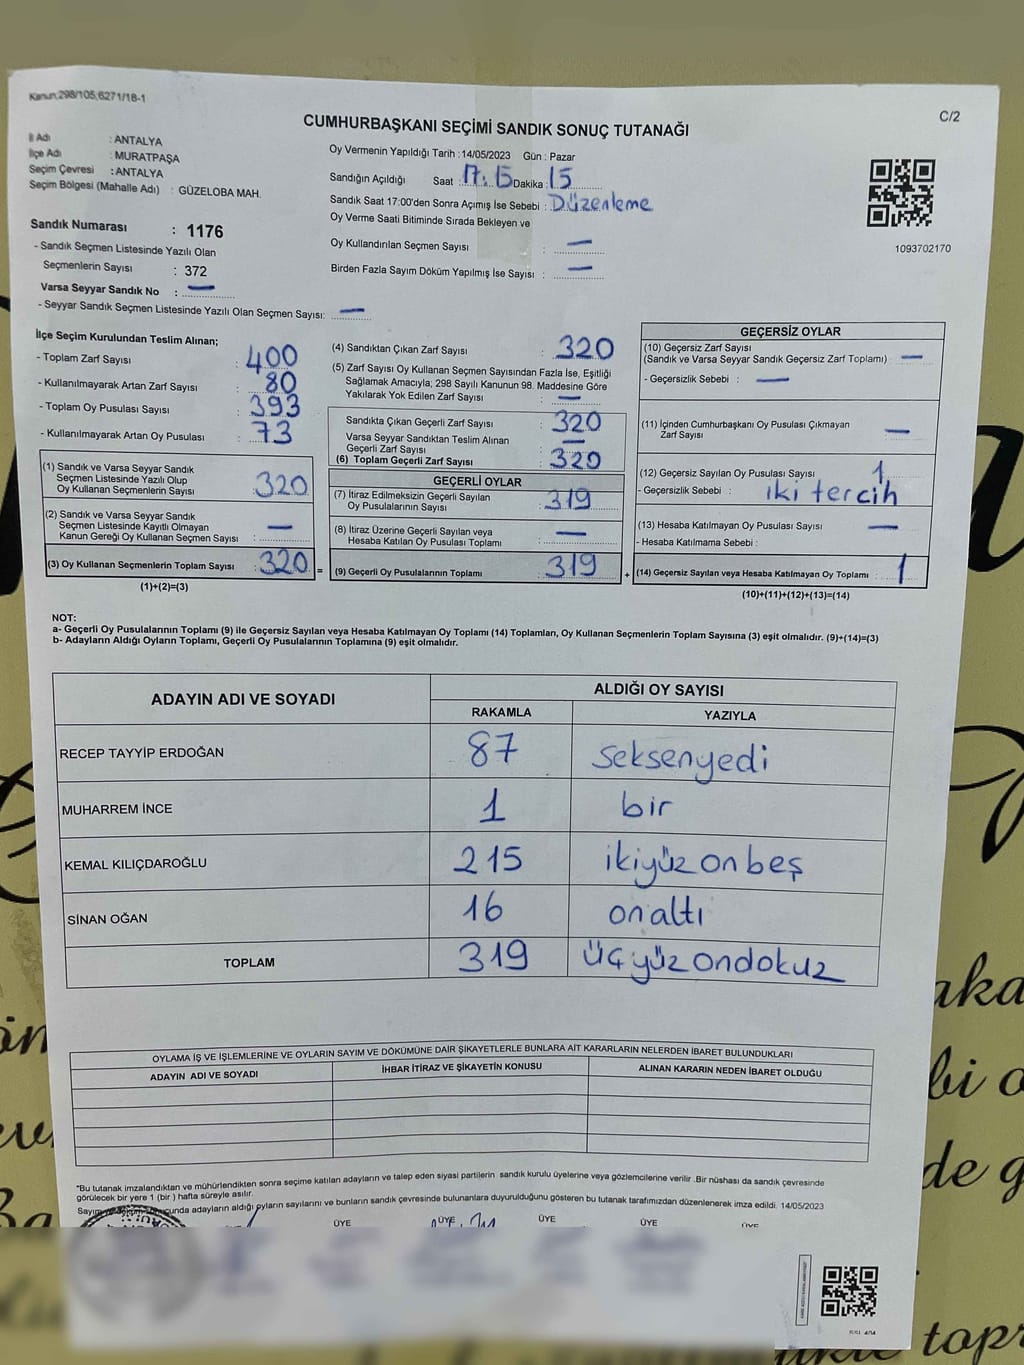 Kanun;298/105;6271/18-1
C/2
CUMHURBAŞKANI SEÇİMİ SANDIK SONUÇ TUTANAĞI
İl Adı : ANTALYA
İlçe Adı : MURATPAŞA
Seçim Çevresi : ANTALYA
Seçim Bölgesi (Mahalle Adı) : GÜZELOBA MAH.
Sandık Numarası : 1176
- Sandık Seçmen Listesinde Yazılı Olan
Seçmenlerin Sayısı : 372
Varsa Seyyar Sandık No : —
- Seyyar Sandık Seçmen Listesinde Yazılı Olan Seçmen Sayısı: —
Oy Vermenin Yapıldığı Tarih : 14/05/2023 Gün : Pazar
Sandığın Açıldığı Saat : 17:15 Dakika : 15
Sandık Saat 17:00'den Sonra Açımış İse Sebebi : Düzenleme
Oy Verme Saati Bitiminde Sırada Bekleyen ve
Oy Kullandırılan Seçmen Sayısı : —
Birden Fazla Sayım Döküm Yapılmış İse Sayısı : —
1093702170
İlçe Seçim Kurulundan Teslim Alınan;
- Toplam Zarf Sayısı : 400
- Kullanılmayarak Artan Zarf Sayısı : 80
- Toplam Oy Pusulası Sayısı : 393
- Kullanılmayarak Artan Oy Pusulası : 73
(1) Sandık ve Varsa Seyyar Sandık
Seçmen Listesinde Yazılı Olup
Oy Kullanan Seçmenlerin Sayısı : 320
(2) Sandık ve Varsa Seyyar Sandık
Seçmen Listesinde Kayıtlı Olmayan
Kanun Gereği Oy Kullanan Seçmen Sayısı : —
(3) Oy Kullanan Seçmenlerin Toplam Sayısı : 320 =
(1)+(2)=(3)
(4) Sandıktan Çıkan Zarf Sayısı : 320
(5) Zarf Sayısı Oy Kullanan Seçmen Sayısından Fazla İse, Eşitliği
Sağlamak Amacıyla; 298 Sayılı Kanunun 98. Maddesine Göre
Yakılarak Yok Edilen Zarf Sayısı : —
Sandıkta Çıkan Geçerli Zarf Sayısı : 320
Varsa Seyyar Sandıktan Teslim Alınan
Geçerli Zarf Sayısı : —
(6) Toplam Geçerli Zarf Sayısı : 320
GEÇERLİ OYLAR
(7) İtiraz Edilmeksizin Geçerli Sayılan
Oy Pusulalarının Sayısı : 319
(8) İtiraz Üzerine Geçerli Sayılan veya
Hesaba Katılan Oy Pusulası Toplamı : —
(9) Geçerli Oy Pusulalarının Toplamı : 319 +
GEÇERSİZ OYLAR
(10) Geçersiz Zarf Sayısı
(Sandık ve Varsa Seyyar Sandık Geçersiz Zarf Toplamı) : —
- Geçersizlik Sebebi : —
(11) İçinden Cumhurbaşkanı Oy Pusulası Çıkmayan
Zarf Sayısı : —
(12) Geçersiz Sayılan Oy Pusulası Sayısı : 1
- Geçersizlik Sebebi : iki tercih
(13) Hesaba Katılmayan Oy Pusulası Sayısı : —
- Hesaba Katılmama Sebebi :
(14) Geçersiz Sayılan veya Hesaba Katılmayan Oy Toplamı : 1
(10)+(11)+(12)+(13)=(14)
NOT:
a- Geçerli Oy Pusulalarının Toplamı (9) ile Geçersiz Sayılan veya Hesaba Katılmayan Oy Toplamı (14) Toplamları, Oy Kullanan Seçmenlerin Toplam Sayısına (3) eşit olmalıdır. (9)+(14)=(3)
b- Adayların Aldığı Oyların Toplamı, Geçerli Oy Pusulalarının Toplamına (9) eşit olmalıdır.
ADAYIN ADI VE SOYADI
ALDIĞI OY SAYISI
RAKAMLA YAZIYLA
RECEP TAYYİP ERDOĞAN 87 seksenyedi
MUHARREM İNCE 1 bir
KEMAL KILIÇDAROĞLU 215 ikiyüzonbeş
SİNAN OĞAN 16 onaltı
TOPLAM 319 üçyüzondokuz
OYLAMA İŞ VE İŞLEMLERİNE VE OYLARIN SAYIM VE DÖKÜMÜNE DAİR ŞİKAYETLERLE BUNLARA AİT KARARLARIN NELERDEN İBARET BULUNDUKLARI
ADAYIN ADI VE SOYADI İHBAR İTİRAZ VE ŞİKAYETİN KONUSU ALINAN KARARIN NEDEN İBARET OLDUĞU
*Bu tutanak imzalandıktan ve mühürlendikten sonra seçime katılan adayların ve talep eden siyasi partilerin sandık kurulu üyelerine veya gözlemcilerine verilir .Bir nüshası da sandık çevresinde
görülecek bir yere 1 (bir ) hafta süreyle asılır.
adayların aldığı oyların sayılarını ve bunların sandık çevresinde bulunanlara duyurulduğunu gösteren bu tutanak tarafımızdan düzenlenerek imza edildi. 14/05/2023
ÜYE ÜYE ÜYE ÜYE ÜYE